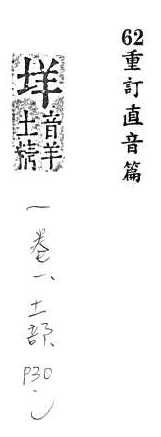 62重訂直音篇
垟
音羊
土精
(卷一、土部 P30)